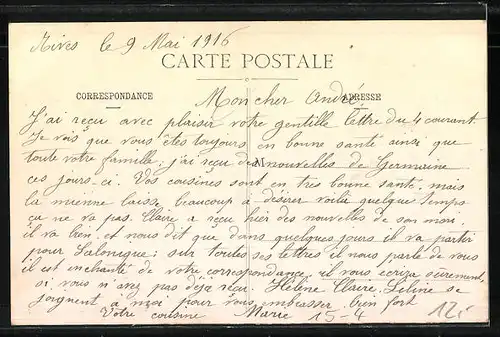 Rives le 9 Mai 1916
CARTE POSTALE
CORRESPONDANCE
ADRESSE
Mon cher André
J'ai reçu avec plaisir votre gentille lettre du 4 courant
Je vois que vous êtes toujours en bonne santé ainsi que
toute votre famille; j'ai reçu des nouvelles de Germaine
ces jours-ci. Vos cousines sont en très bonne santé, mais
la mienne laisse beaucoup à désirer voilà quelque temps
ça ne va pas. Claire a reçu hier des nouvelles de son
il va bien. et nous dit que dans quelques jours il va partir
pour Salonique; sur toutes ses lettres il nous parle de vous
il est enchanté de votre correspondance, il vous ecrira sûrement,
si vous n'avez pas déjà reçu. Hélène Claire, Céline se
joignent à moi pour vous embrasser bien fort
Votre cousine Marie 15-4